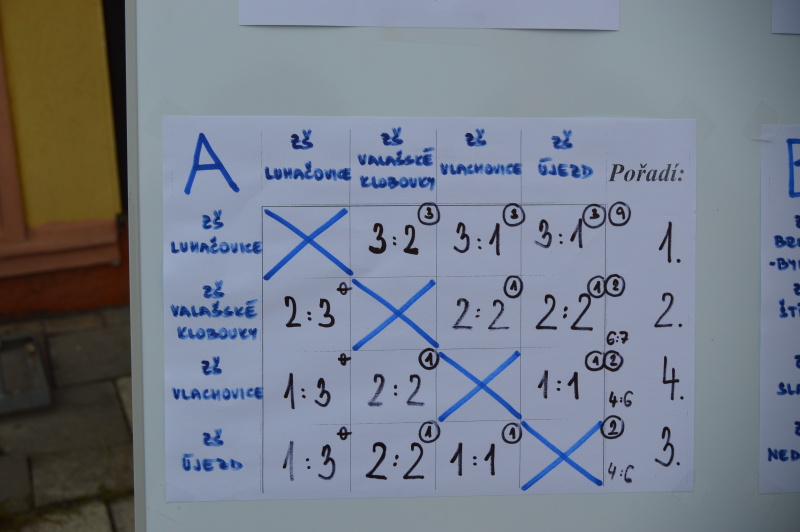 A
ZŠ LUHAČOVICE
ZŠ VALAŠSKÉ KLOBOUKY
ZŠ VLACHOVICE
ZŠ ÚJEZD
Pořadí:
ZŠ LUHAČOVICE 3:2 3 3:1 3 3:1 3 9 1.
ZŠ VALAŠSKÉ KLOBOUKY 2:3 0 2:2 1 2:2 1 2 6:7 2.
ZŠ VLACHOVICE 1:3 0 2:2 1 1:1 1 2 4:6 4.
ZŠ ÚJEZD 1:3 0 2:2 1 1:1 1 2 4:6 3.